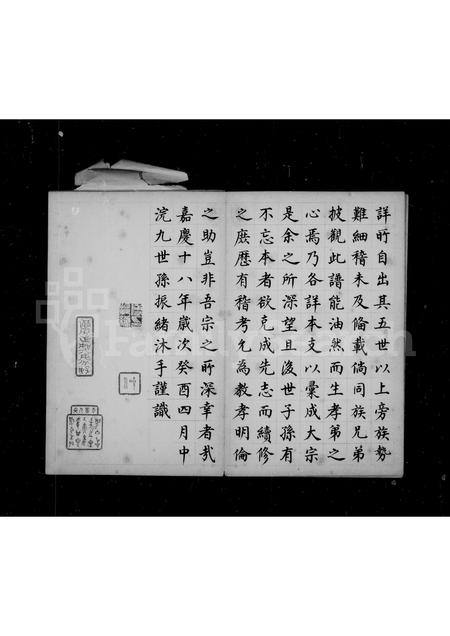 詳所自出其五世以上旁族勢
難細稽未及備載倘同族兄弟
披觀此譜能油然而生孝弟之
心焉乃各詳本支以彙成大宗
是余之所深望且後世子孫有
不忘本者欲克成先志而續修
之庶歷有稽考允為教孝明倫
之助豈非吾宗之所深幸者哉
嘉慶十八年歲次癸酉四月中
浣九世孫振緒沐手謹識